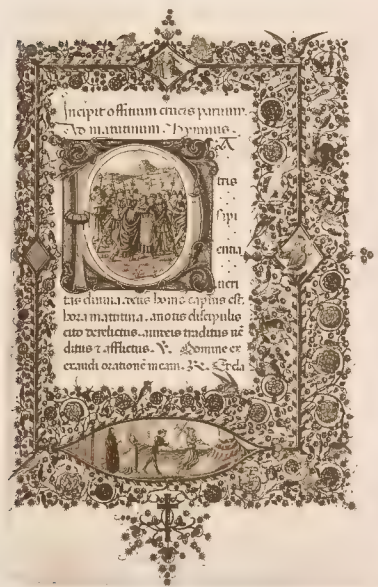 Incipit offitium crucis paruum.
Ad matutinum. Hymnus.
PA
tris
sapi
entia
ueri
tas diuina. deus homo captus est.
hora matutina. a notis discipulis
cito derelictus. a iudeis traditus uē
ditus ⁊ afflictus. ℣. Domine ex
exaudi orationē meam. ℟. Et cla